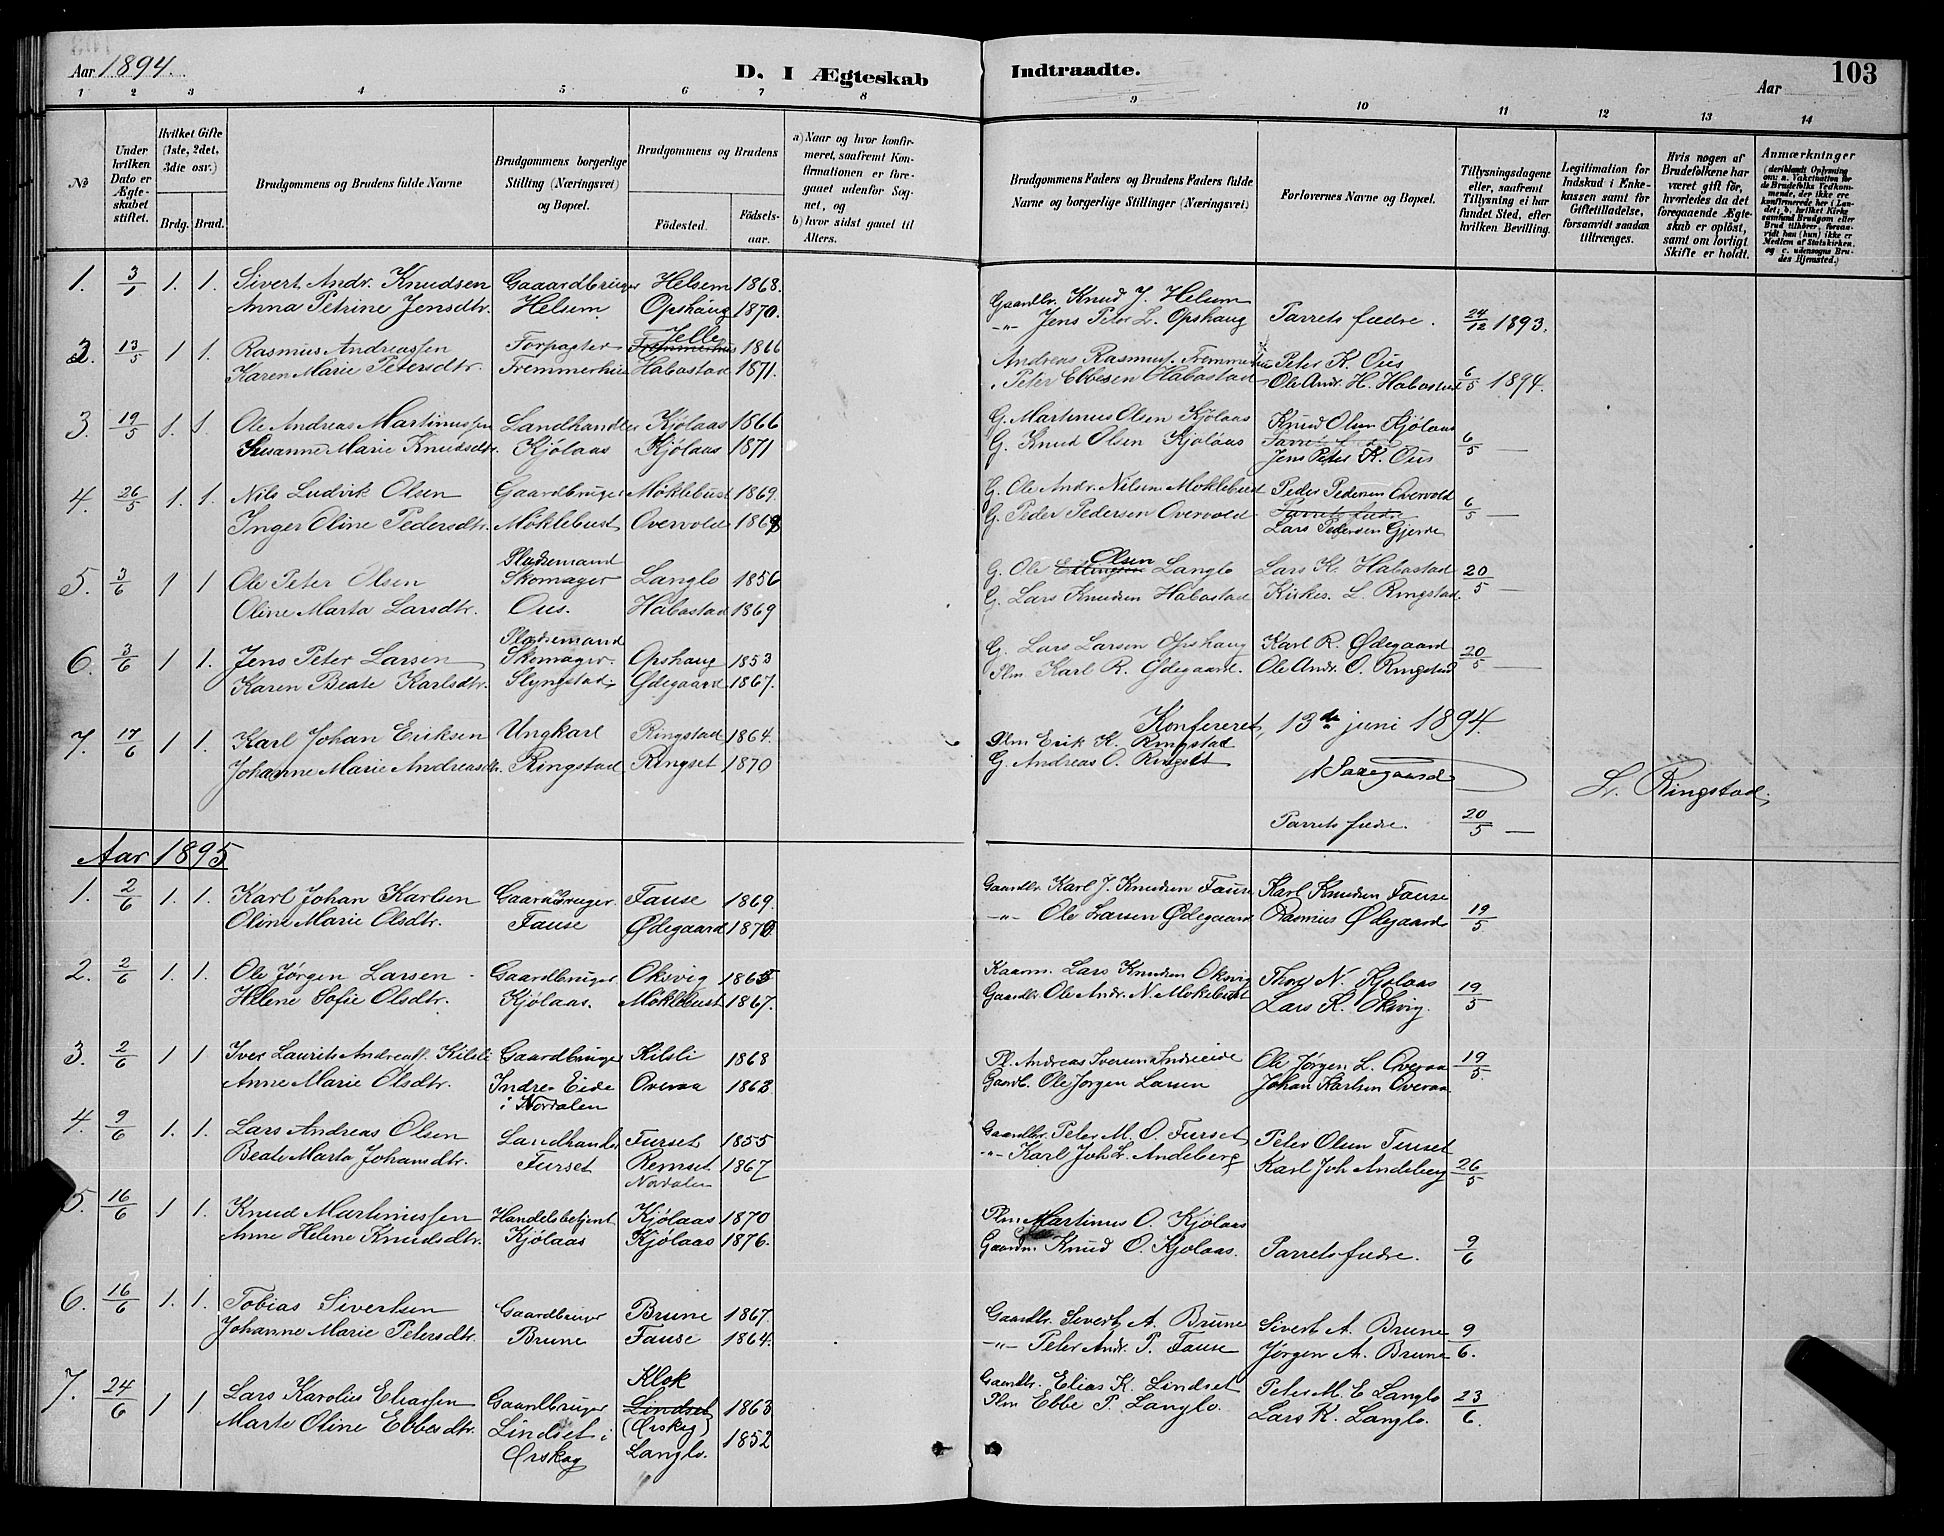 Aar 1894.
D. I Ægteskab
Indtraadte.
Aar
103
1 2 3 4 5 6 7 8 9 10 11 12 13 14
No
Under hvilken Dato er Ægteskabet stiftet.
Hvilket Gifte (1ste, 2det, 3die osv.)
Brdg. Brud.
Brudgommens og Brudens fulde Navne
Brudgommens borgerlige Stilling (Næringsvei) og Bopæl.
Brudgommens og Brudens
Fødested.
Fødselsaar.
a) Naar og hvor konfirmeret, saafremt Konfirmationen er foregaaet udenfor Sognet, og
b) hvor sidst gaaet til Alters.
Brudgommens Faders og Brudens Faders fulde Navne og borgerlige Stillinger (Næringsvei)
Forlovernes Navne og Bopæl.
Tillysningsdagene eller, saafremt Tillysning ei har fundet Sted, efter hvilken Bevilling.
Legitimation for Indskud i Enkekassen samt for Giftetilladelse, forsaavidt saadan tiltrænges.
Hvis nogen af Brudefolkene har været gift før, hvorledes da det foregaaende Ægteskab er opløst, samt om lovligt Skifte er holdt.
Anmærkninger
1. 3/1 1. 1. Sivert Andr. Knudsen Gaaardbruger Helsem 1868. Gaardbr. Knud J. Helsem
Anna Petrine Jensdtr. Helsem Opshaug 1870. -"- Jens Peter L. Opshaug Parrets fædre. 24/12 1893.
2. 13/5 1 1. Rasmus Andreassen Forpagter Fremmerhus Jelle 1866 Andreas Rasmus. Fremmerhus Peter K. Ous
Karen Marie Petersdtr. Fremmerhus Habostad 1871. Peter Ebbesen Habostad Ole Andr. H. Habostad 6/5 1894.
3. 19/5 1. 1. Ole Andreas Martinussen Landhandler Kjölaas 1866 G. Martinus Olsen Kjölaas Knud Olsen Kjölaas
Susanne Marie Knudsdtr. Kjölaas Kjölaas 1871 G. Knud Olsen Kjølaas Parrets fædre Jens Peter K. Ous 6/5 —
4. 26/5 1. 1. Nils Ludvik Olsen Gaardbruger Møklebust 1869. G. Ole Andr. Nilsen Møklebust Peder Pedersen Overvold
Inger Oline Pedersdtr. Møklebust Overvold 1868 G. Peder Pedersen Overvold. Parrets fædre Lars Pedersen Gjerde 6/5 —
5. 3/6 1 1 Ole Peter Olsen Pladsemand Skomager Langlo 1856 G. Ole Olsen Langlo Lars K. Habostad 20/5 —
Oline Marta Larsdtr. Ous. Habostad 1869 G. Lars Knudsen Habostad Kirkes. L. Ringstad.
6. 3/6 1 1. Jens Peter Larsen Pladsemand Skomager. Opshaug 1853 G. Lars Larsen Opshaug Karl R. Ødegaard 20/5 —
Karen Beate Karlsdtr. Slyngstad Ødegaard 1867. Plm. Karl R. Ødegaard. Ole Andr. O. Ringstad
Konfereret, 13de juni 1894.
7. 17/6 1 1. Karl Johan Eriksen Ungkarl Ringstad 1864. Plm Erik K. Ringstad
Johanne Marie Andreasdtr. Ringstad Ringset 1870 G. Andreas O. Ringset
L. Ringstad.
Parrets fædre. 20/5 —
Aar 1895
1. 2/6 1. 1. Karl Johan Karlsen Gaardbruger. Fause 1869. Gaardbr. Karl J. Knudsen Fause Karl Knudsen Fause
Oline Marie Olsdtr. Fause Ødegaard 1870. -"- Ole Larsen Ødegaard Rasmus Ødegaard 19/5
2. 2/6 1. 1. Ole Jørgen Larsen Gaardbruger. Oksvig 1865 Kaarm. Lars Knudsen Oksvig Thor N. Kjølaas
Helene Sofie Olsdtr. Kjölaas. Møklebust 1867. Gaardbr. Ole Andr. N. Møkebust Lars K. Oksvig. 19/5
3. 2/6 1 1 Iver Laurits Andreass. Kilsli Gaardbruger Kilsli 1868 Pl. Andreas Iversen Indreeide Ole Jørgen L. Overaa 19/5.
Anne Marie Olsdtr. Indre-Eide i Nordalen Overaa 1863. Gaardb. Ole Jørgen Larsen Johan Karlsen Overaa
4. 9/6 1. 1. Lars Andreas Olsen Landhandler Furset 1855 Gaardbr. Peter M. O. Furset, Peter Olsen Furset
Beate Marta Johansdtr. Furset Remset Nordalen 1867 -"- Karl Joh L. Andeberg Karl Joh Andeberg 26/5
5. 16/6 1 1. Knud Martinussen Handelsbetjent Kjölaas 1870 Plm Martinus O. Kjölaas
Anne Helene Knudsdtr. Kjölaas Kjölaas 1876. Gaardm. Knud O. Kjölaas. Parrets fædre. 9/6
6. 16/6 1. 1. Tobias Sivertsen Gaardbruger Brune 1867. Gaardbr. Sivert A. Brune Sivert A. Brune
Johanne Marie Petersdtr. Brune Fause 1864. -"- Peter Andr. P. Fause Jørgen A. Brune 9/6.
7. 24/6 1 1 Lars Karolius Eliassen Gaardbruger Klok Lindset (Ørskog) 1863 Gaardbr. Elias K. Lindset Peter M. E Langlo 23/6.
Marte Oline Ebbesdtr. Lindset i Ørskog Langlo. 1852 Plm Ebbe P. Langlo. Lars K. Langlo.